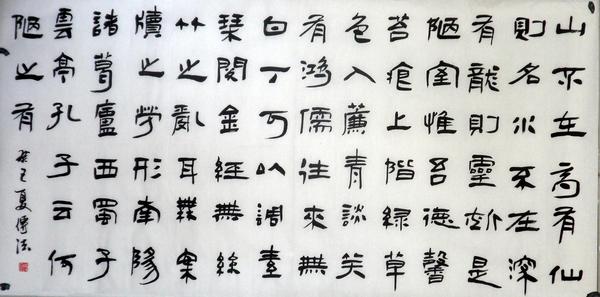 山不在高有仙
則名水不在深
有龍則靈斯是
陋室惟吾德馨
苔痕上階緑草
色入簾青談笑
有鴻儒往來無
白丁可以調素
琹閲金經無絲
竹之亂耳無案
牘之勞形南陽
諸葛廬西蜀子
雲亭孔子云何
陋之有
癸巳夏傳法